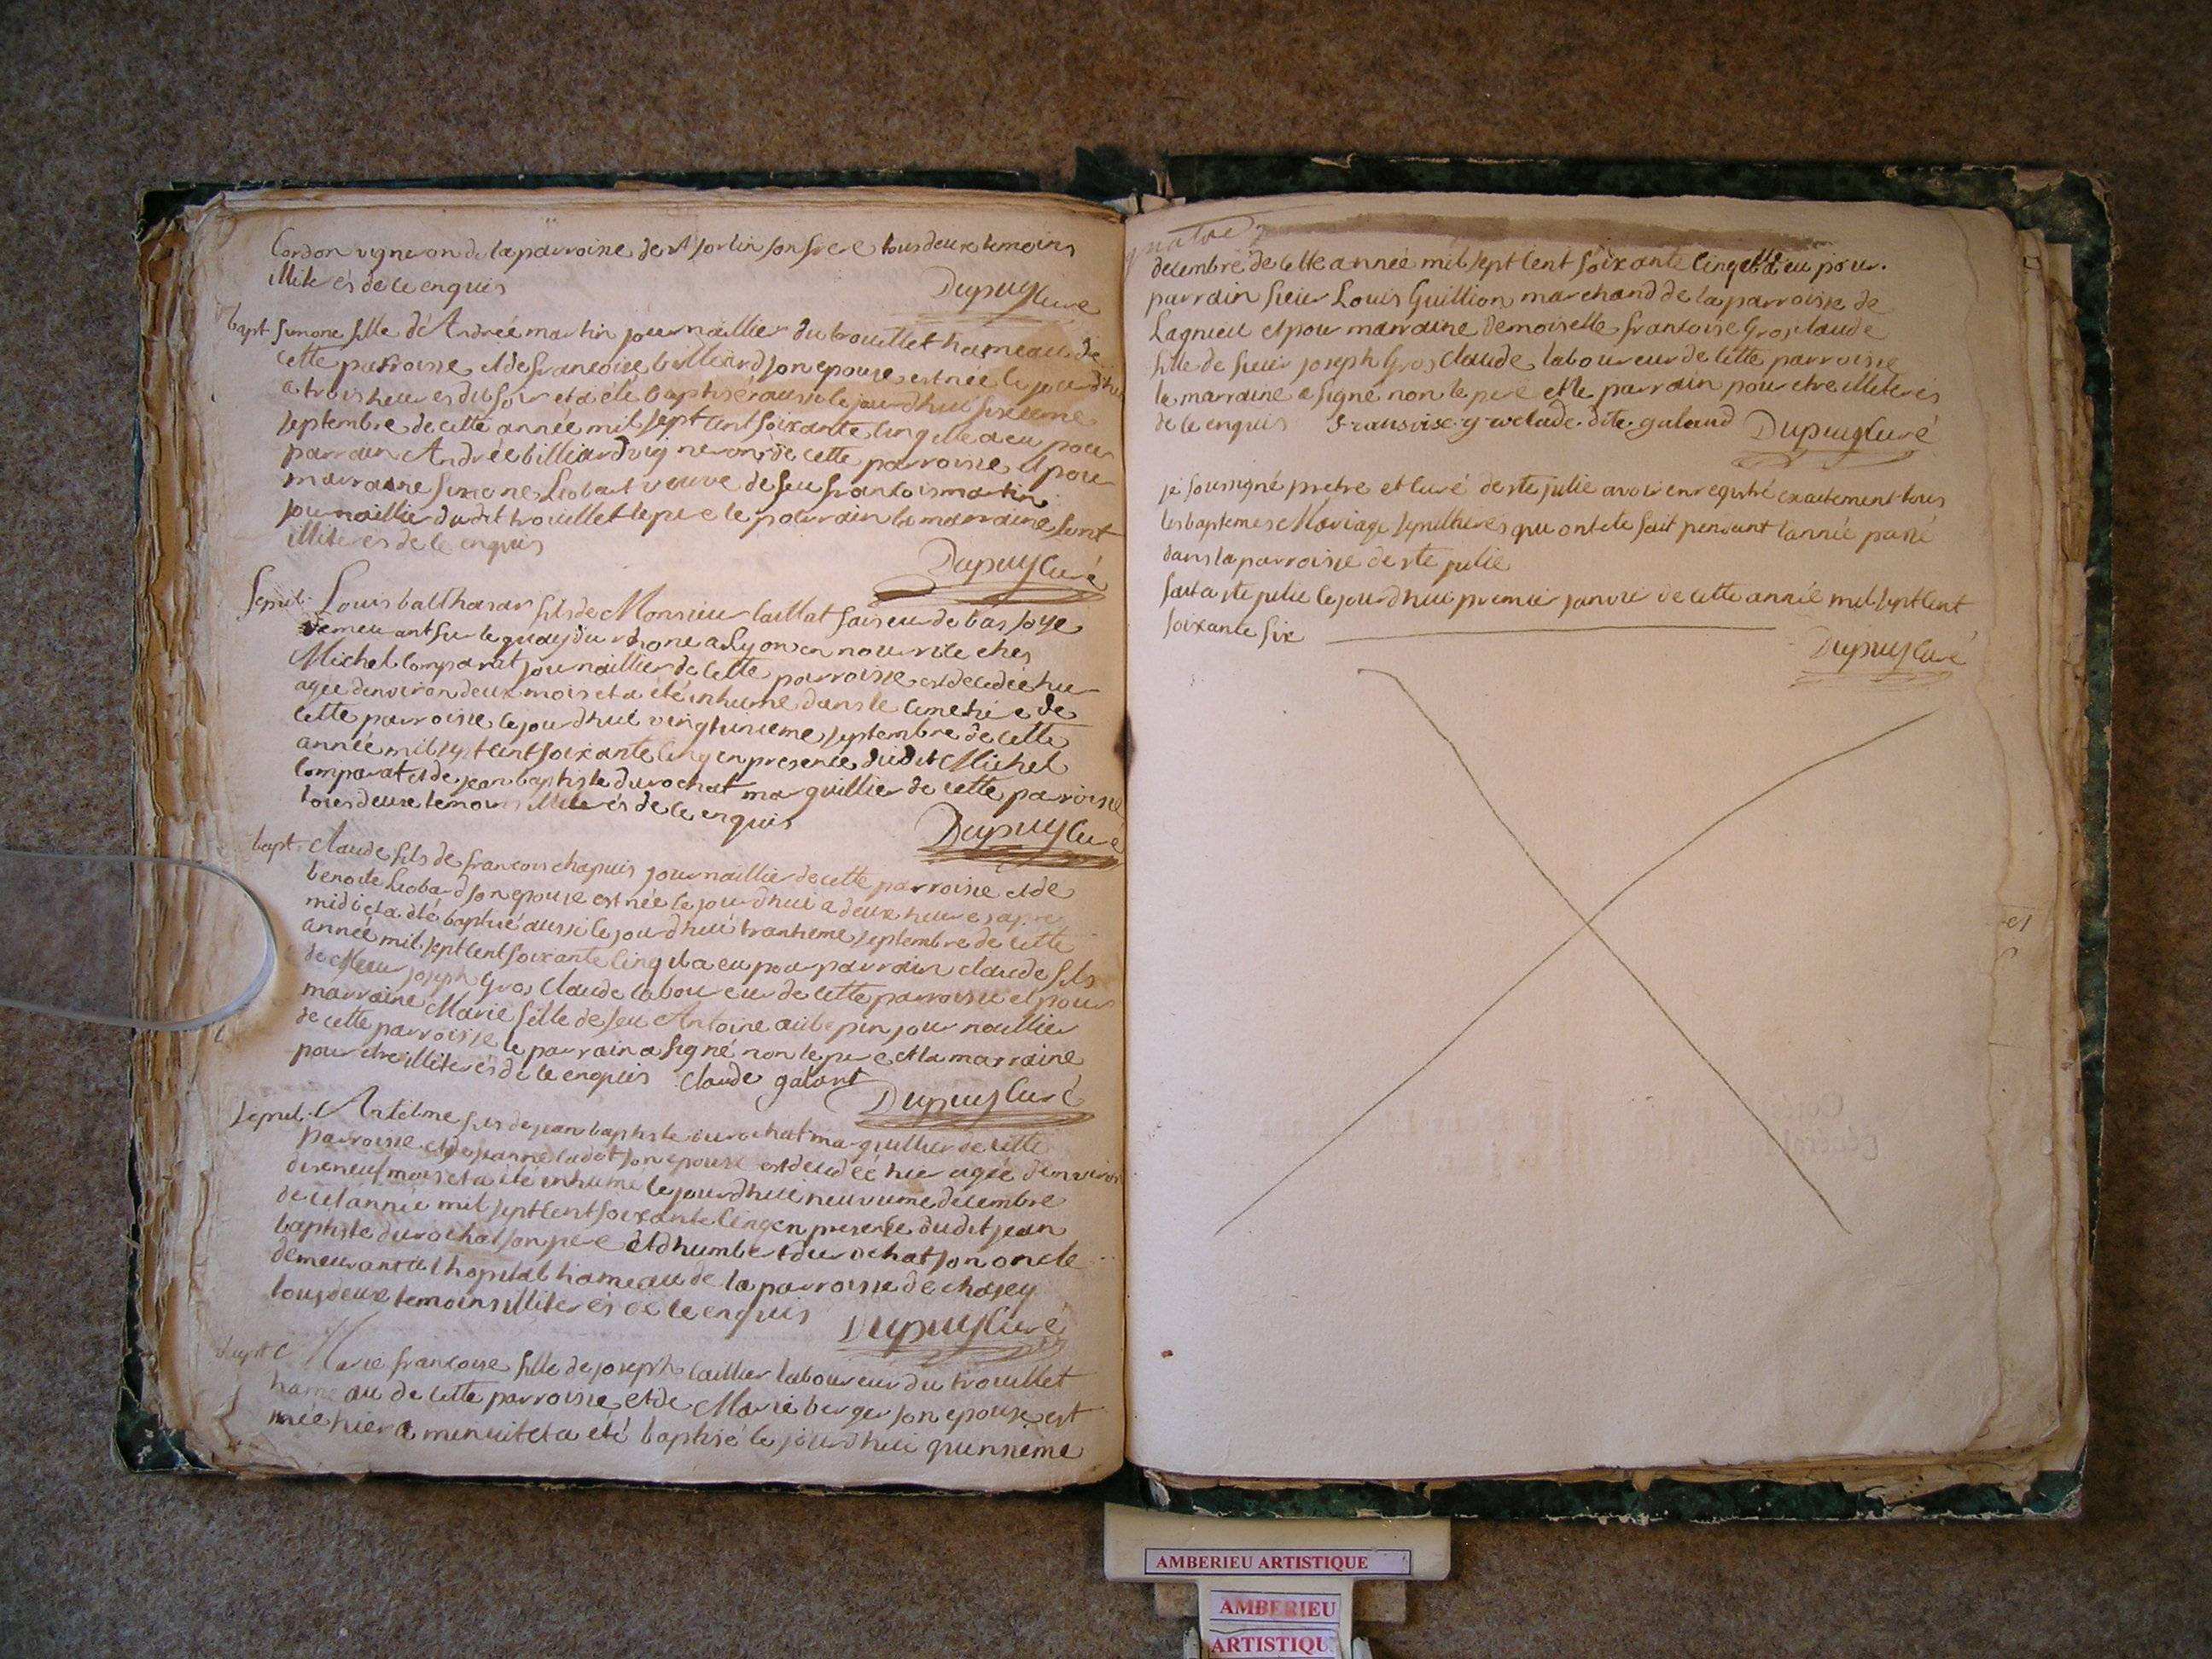 Cordon vigneron de la parroisse de st sorlin son frere tous deux temoins
illiterés de ce enquis
Dupuy Curé
bapt. simone fille de Andreé martin journaillier du trouillet hameau de
cette parroisse et de francoise billiard son epouse est neé ce jourd'hui
a trois heures du soir et a été baptiseé aussi ce jourdhui sixieme
septembre de cette année mil sept cent soixante cinq elle a eu pour
parrain Andreé billiard vigneron de cette parroisse et pour
marraine simone Liobard veuve de feu francois martin
journaillier dudit trouillet le pere le parrain la marraine sont
illiterés de ce enquis
Dupuy Curé
sepul. Louis balthasar fils de Monsieur caillat faiseur de bas soye
demeurant sur le quay du rhone a Lyon en nourrice ches
Michel Comparat journaillier de cette parroisse est decedé hier
ageé d'environ deux mois et a été inhumé dans le cimetiere de
cette parroisse ce jourdhui vingtunieme septembre de cette
année mil sept cent soixante cinq en presence dudit Michel
Comparat et de jean baptiste durochat marguillier de cette parroisse
tous deux temoins illiterés de ce enquis
Dupuy Curé
bapt. claude fils de francois chapuis journaillier de cette parroisse et de
benoite Liobard son epouse est neé ce jourdhui a deux heures apres
midi et a été baptisé aussi ce jourdhui trantieme septembre de cette
année mil sept cent soixante cinq il a eu pour parrain claude fils
de sieur joseph Gros Claude laboureur de cette parroisse et pour
marraine Marie fille de feu Antoine aubepin journaillier
de cette parroisse le parrain a signé non le pere et la marraine
pour etre illiterés de ce enquis claude galant
Dupuy Curé
sepul. Antelme fils de jean baptiste durochat marguillier de cette
parroisse et de jeanne cadot son epouse est decedeé hier ageé d'environ
dixneuf mois et a été inhumé ce jourdhui neuvieme decembre
de cet année mil sept cent soixante cinq en presence dudit jean
baptiste durochat son pere et d'humbert durochat son oncle
demeurant a l hopital hameau de la parroisse de chasey
tous deux temoins illiterés de ce enquis
Dupuy Curé
bapt Marie francoise fille de joseph caillier laboureur du trouillet
hameau de cette parroisse et de Marie berger son epouse est
neé hier a minuit et a été baptisé ce jourdhui quinsieme
quatre
decembre de cette année mil sept cent soixante cinq elle a eu pour
parrain sieur Louis Guillion marchand de la parroisse de
Lagnieu et pour marraine demoiselle francoise Gros claude
fille de sieur joseph Gros Claude laboureur de cette parroisse
la marraine a signé non le pere et le parrain pour etre illiterés
de ce enquis fransoise groclade dite galand Dupuy Curé
je soussigné pretre et curé de ste julie avoir enregistré exactement tous
les baptemes Mariage sepultures qui ont eté fait pendant l'année passé
dans la parroisse de ste julie
fait a ste julie ce jourdhui premier janvier de cette année mil sept cent
soixante six
Dupuy Curé
AMBERIEU ARTISTIQUE
AMBERIEU
ARTISTIQU